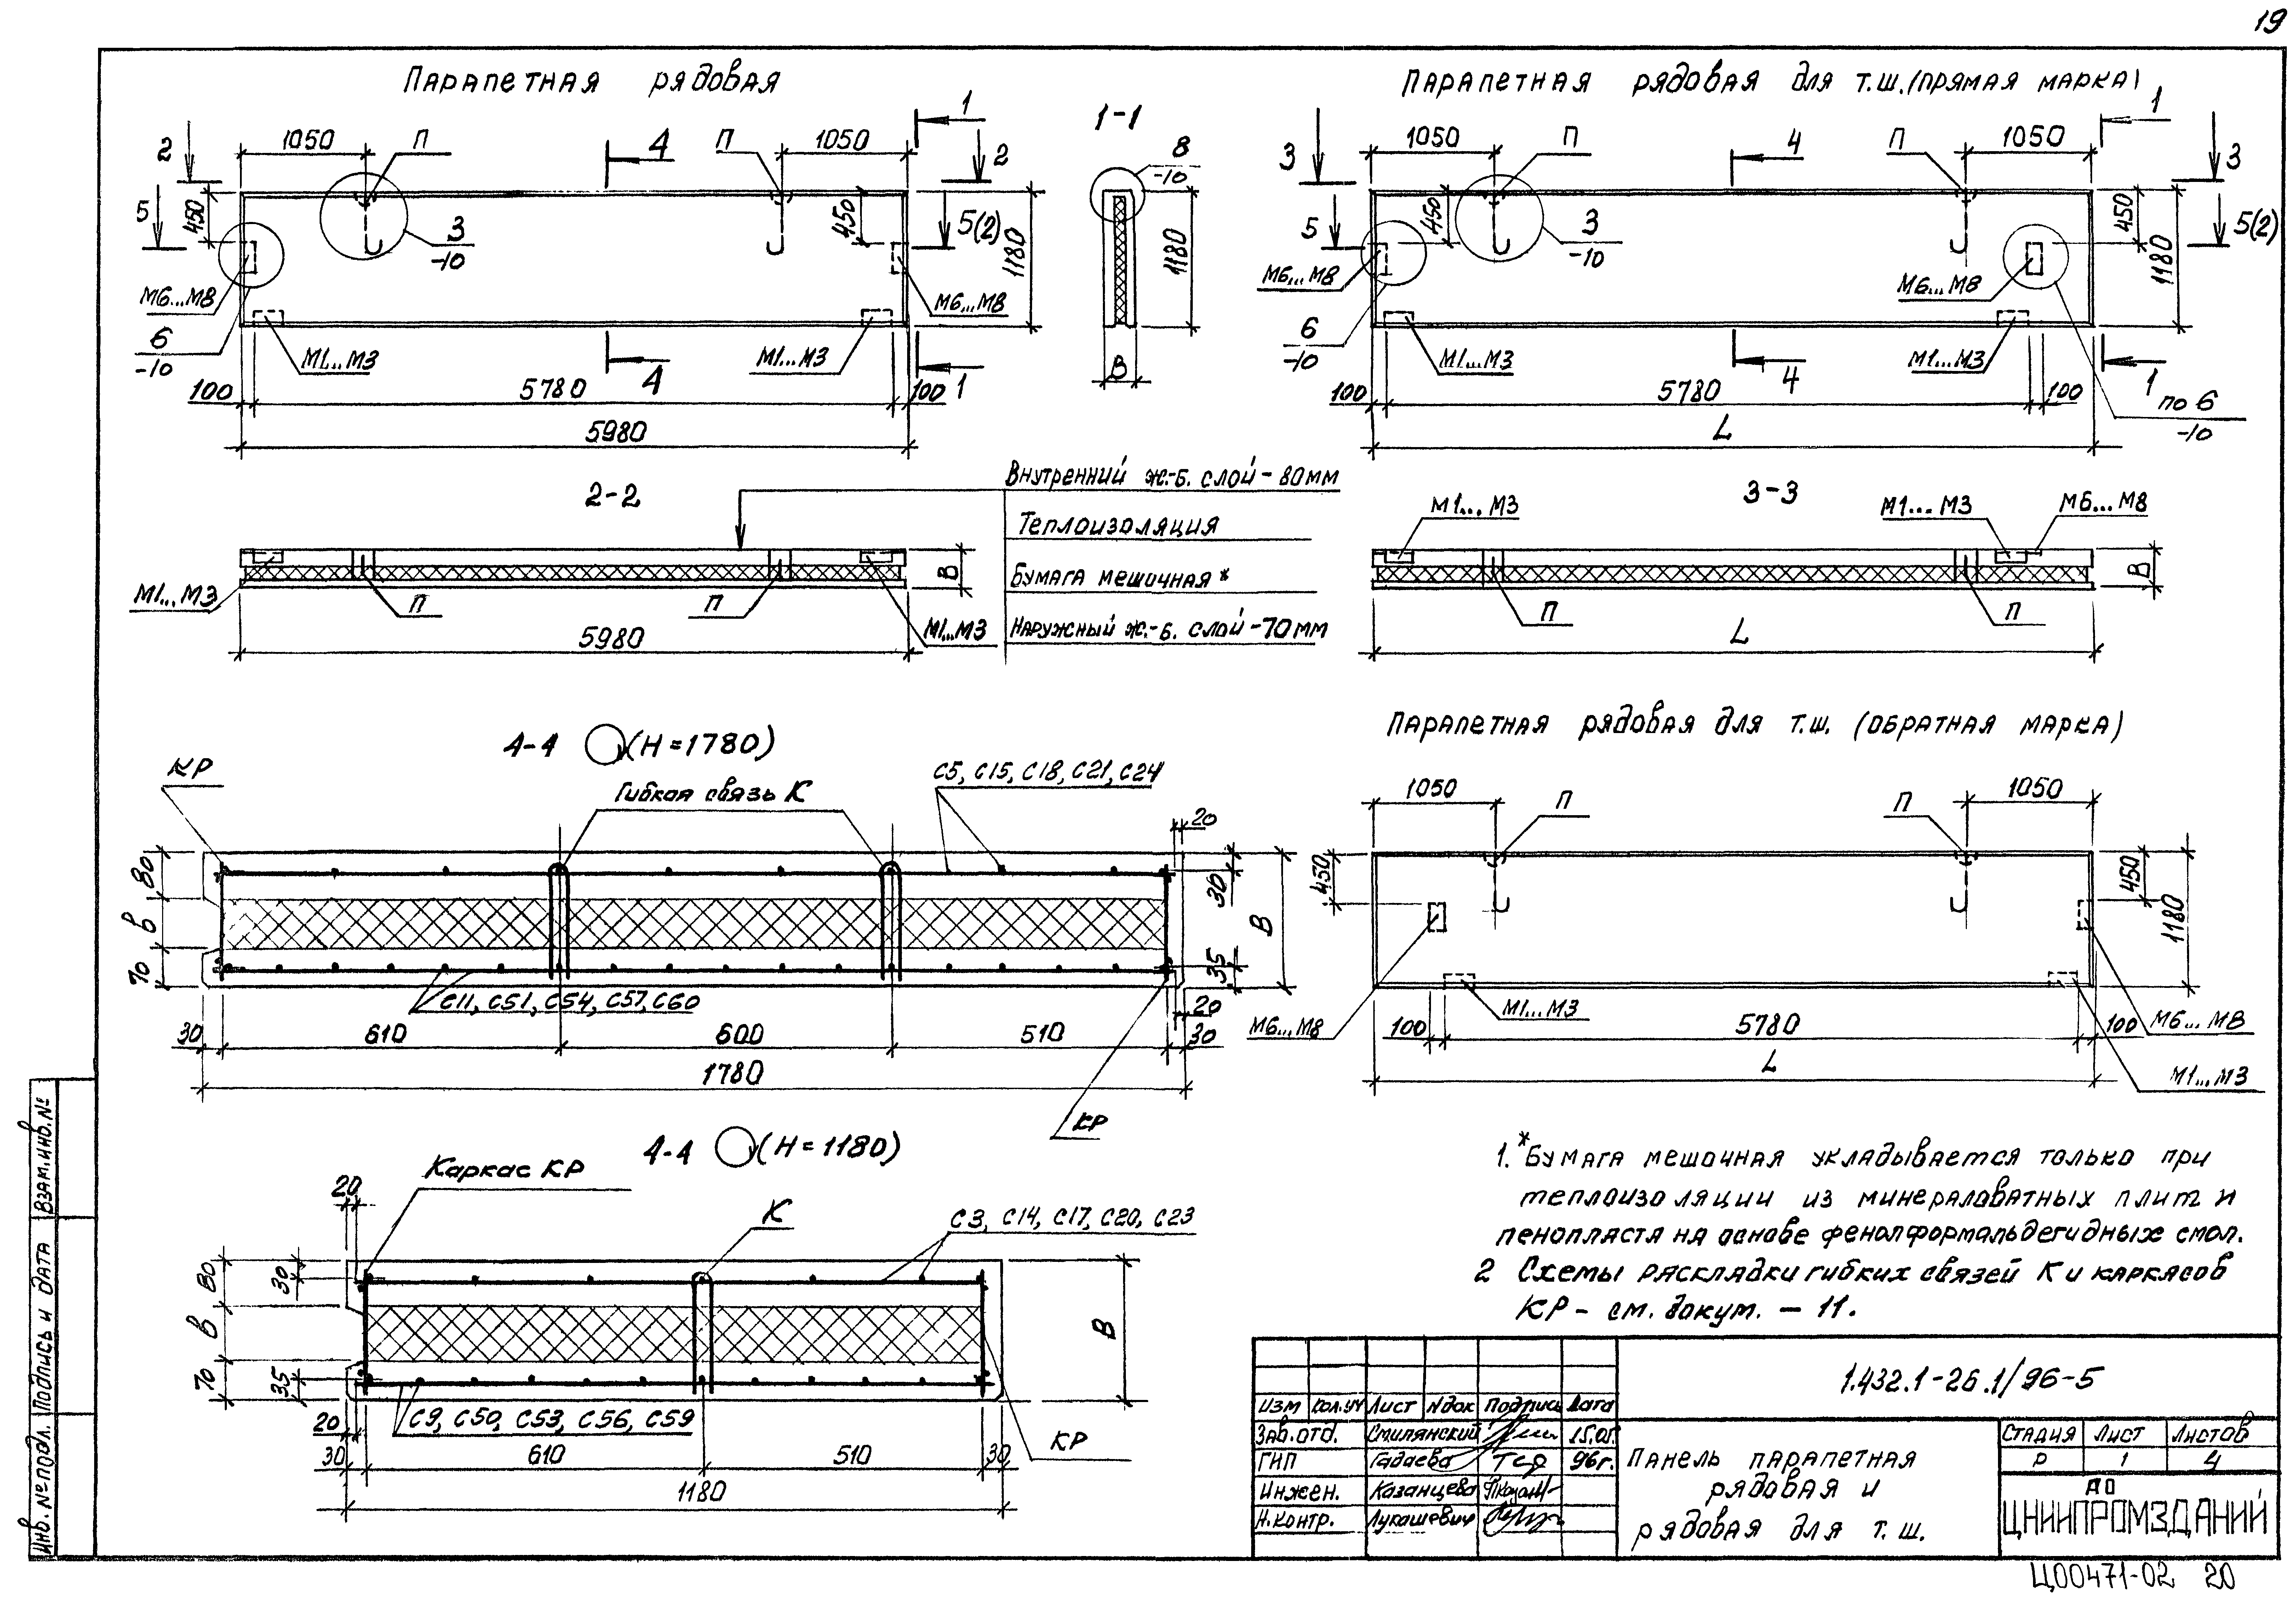 19
Парапетная рядовая
1050
П
П
1050
1
2
4
2
5
450
3
-10
450
5(2)
1180
М6...М8
М6...М8
6
-10
М1...М3
М1...М3
4
1
100
5780
100
5980
1-1
8
-10
1180
В
Парапетная рядовая для т.ш. (прямая марка)
1050
П
4
П
1050
1
3
3
5
450
3
-10
450
1180
5(2)
М6...М8
М6...М8
6
-10
М1...М3
М1...М3
4
1
100
5780
100
по 6
-10
L
2-2
В
М1...М3
П
П
М1...М3
5980
Внутренний ж.-б. слой - 80мм
Теплоизоляция
Бумага мешочная *
Наружный ж.-б. слой - 70мм
3-3
М1...М3
М1...М3
М6...М8
П
П
В
L
4-4 (Н=1780)
КР
Гибкая связь К
С5, С15, С18, С21, С24
20
80
в
70
30
В
35
20
С11, С51, С54, С57, С60
30
610
600
510
30
1780
КР
Парапетная рядовая для т.ш. (обратная марка)
1050
П
П
1050
450
450
1180
М6...М8
М1...М3
100
5780
100
М6...М8
L
М1...М3
4-4 (Н=1180)
Каркас КР
20
К
С3, С14, С17, С20, С23
80
30
в
В
70
35
20
С9, С50, С53, С56, С59
30
610
510
30
КР
1180
1.*Бумага мешочная укладывается только при
теплоизоляции из минераловатных плит и
пенопласта на основе фенолформальдегидных смол.
2 Схемы раскладки гибких связей К и каркасов
КР - см. докум. - 11.
1.432.1-26.1/96-5
Изм Кол.уч Лист Nдок Подпись Дата
Зав.отд. Смилянский 15.05.
ГИП Гадаева 96г.
Инжен. Казанцева
Н.контр. Лукашевич
Панель парапетная
рядовая и
рядовая для т.ш.
Стадия Лист Листов
Р 1 4
АО
ЦНИИПРОМЗДАНИЙ
Инв. № подл. Подпись и дата Взам.инв.№
Ц00471-02 20